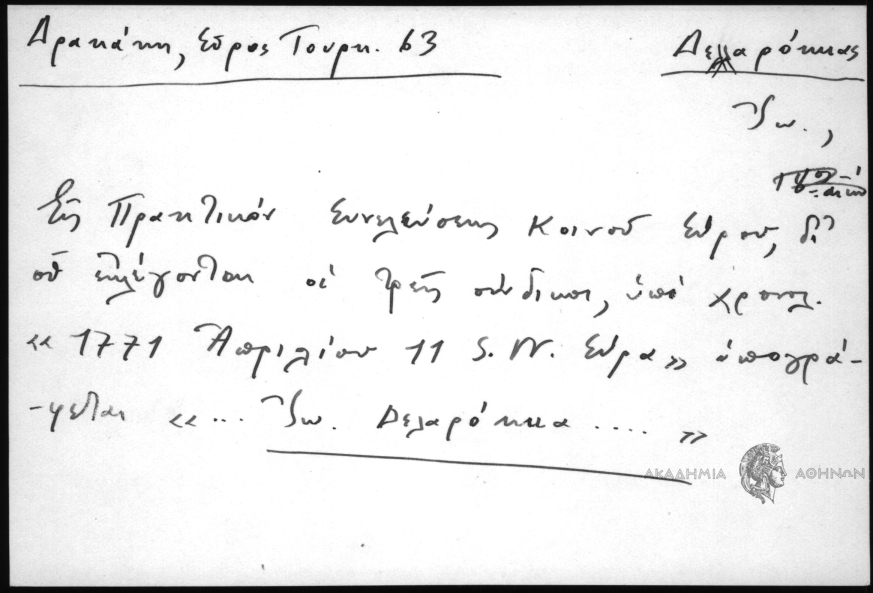 Δρακάκη, Σύρος Τουρκ. 63
Δελλαρόκκας
Ἰω.,
Εἰς Πρακτικόν Συνελεύσεως Κοινοῦ Σύρου, δι'
οὗ ἐκλέγονται οἱ τρεῖς σύνδικοι, ὑπό χρονολ.
«1771 Ἀπριλίου 11 S. N. Σύρα» ὑπογρά-
-φεται «... Ἰω. Δελαρόκκα .... »
ΑΚΑΔΗΜΙΑ ΑΘΗΝΩΝ